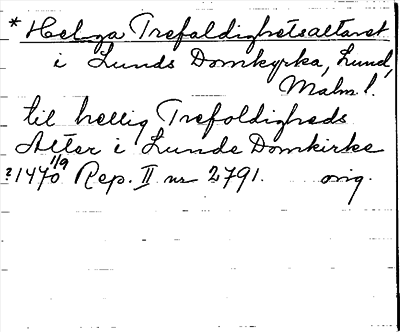 * Helga Trefaldighetsaltaret
i Lunds Domkyrka, Lund,
Malm l.
til hellig Trefoldigheds
Alter i Lunde Domkirke
21470 1/9 Rep. II nr 2791. orig.